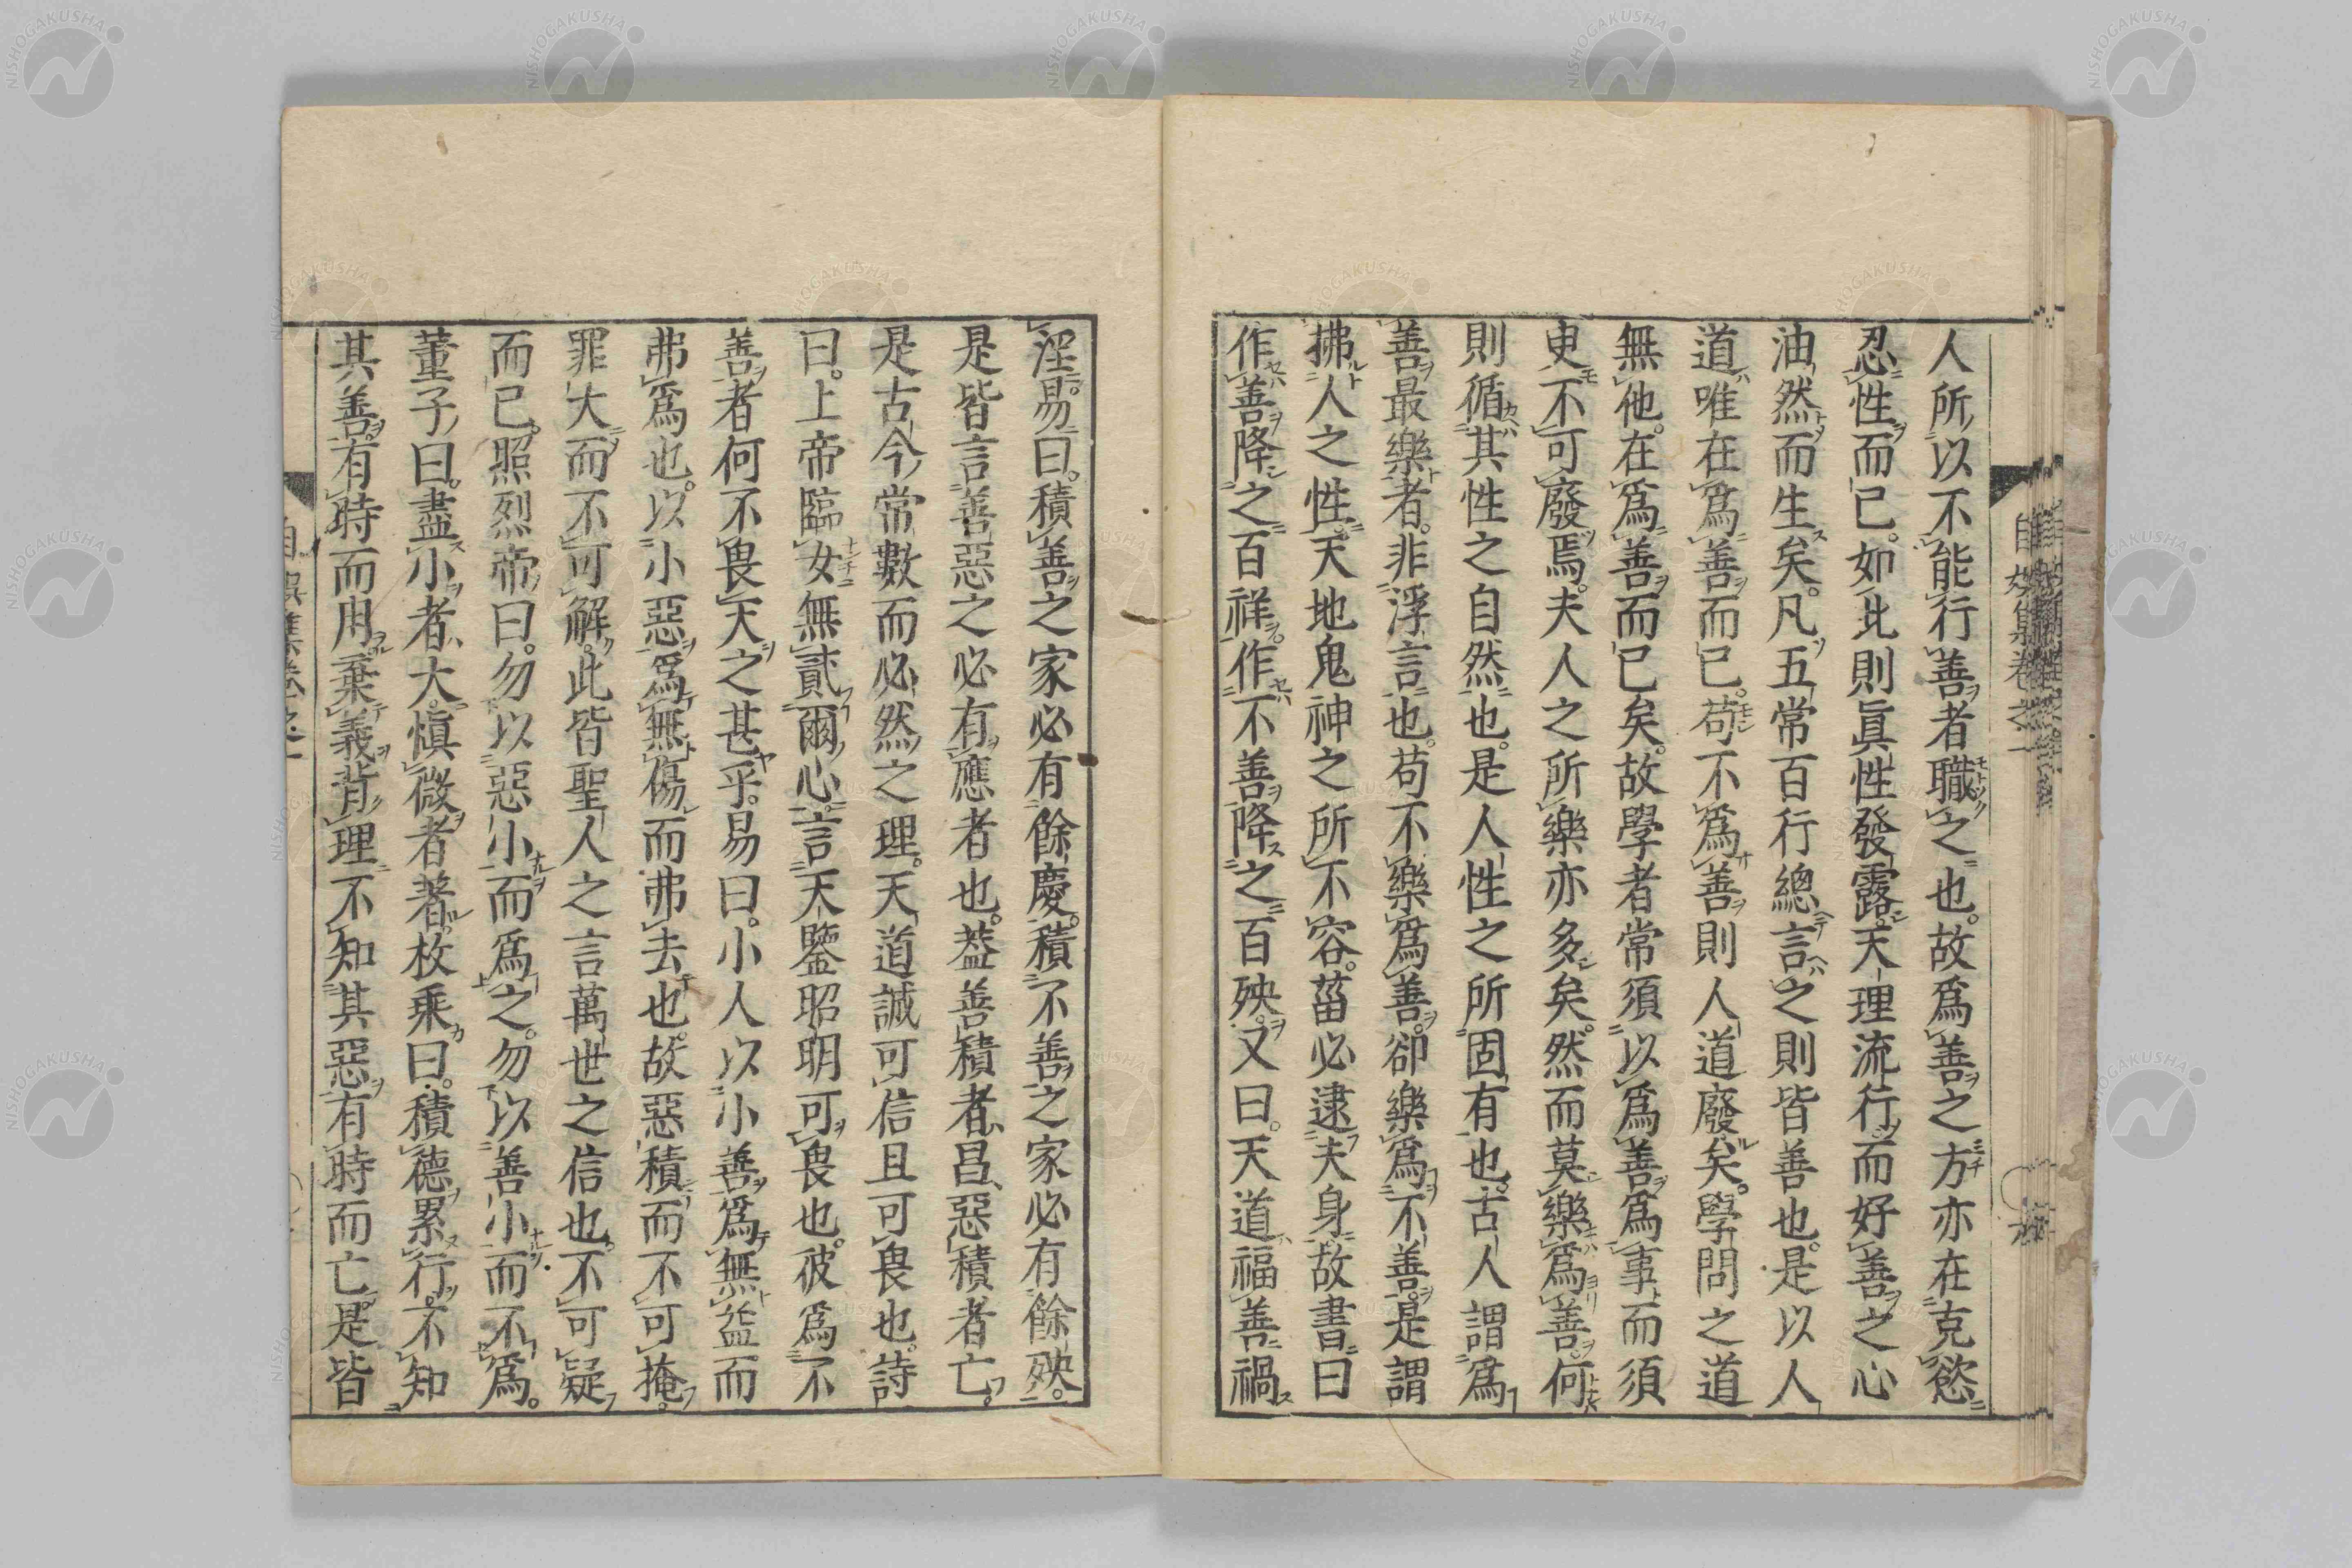 人所以不能行善者職之也。故爲善之方亦在克慾
忍性而已。如此則眞性發露。天理流行。而好善之心
油然而生矣。凡五常百行總言之則皆善也。是以人
道唯在爲善而已。苟不爲善則人道廢矣。學問之道
無他。在爲善而已矣。故學者常須以爲善爲事。而須
臾不可廢焉。夫人之所樂亦多矣。然而莫樂爲善。何
則循其性之自然也。是人性之所固有也。古人謂爲
善最樂者。非浮言也。苟不樂爲善。卻樂爲不善。是謂
拂人之性。天地鬼神之所不容。菑必逮夫身。故書曰
作善降之百祥。作不善降之百殃。又曰。天道福善禍
淫。易曰。積善之家必有餘慶。積不善之家必有餘殃。
是皆言善惡之必有應者也。葢善積者昌、惡積者亡。
是古今常數而必然之理。天道誠可信且可畏也。詩
曰。上帝臨女無貳爾心。言天鑒昭明可畏也。彼爲不
善者何不畏天之甚乎。易曰。小人以小善爲無益而
弗爲也。以小惡爲無傷而弗去也。故惡積而不可掩。
罪大而不可解。此皆聖人之言萬世之信也。不可疑
而已。照烈帝曰。勿以惡小而爲之。勿以善小而不爲。
董子曰。盡小者大。愼微者著。枚乘曰。積德累行。不知
其善。有時而用。棄義背理不知其惡。有時而亡。是皆
自娛集卷之一